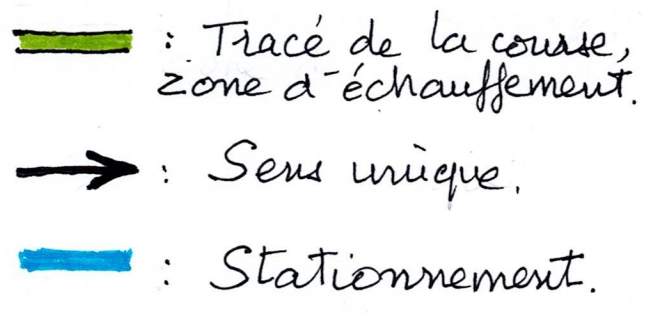 : Tracé de la course,
zone d'échauffement.
: Sens unique.
: Stationnement.